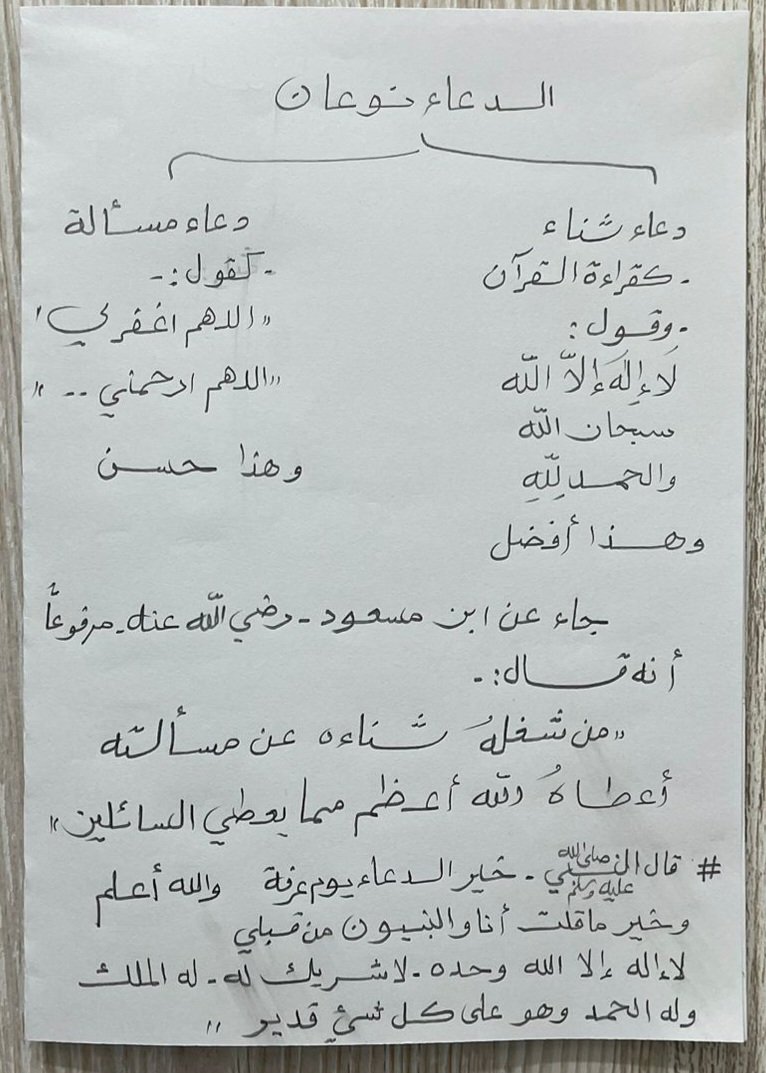 الدعاء نوعان
دعاء ثناء
- كقراءة القرآن
- وقول:
لَا إِلَهَ إِلاَّ اللّه
سبحان اللّه
والحمد لِلّهِ
وهذا أفضل
دعاء مسألة
- كقول:-
"اللهم اغفرلي"
"اللهم ارحمني .. "
وهذا حسن
جاء عن ابن مسعود - رضي اللّه عنه - مرفوعاً
أنه قال:-
"من شغلهُ ثناءه عن مسألته
أعطاهُ اللّه أعظم مما يعطي السائلين"
# قال النبي صلى الله عليه وسلم - خير الدعاء يوم عرفة والله أعلم
وخير ماقلت أنا والنبيون من قبلي
لاإله إلا الله وحده - لاشريك له - له الملك
وله الحمد وهو على كل شئ قدير "